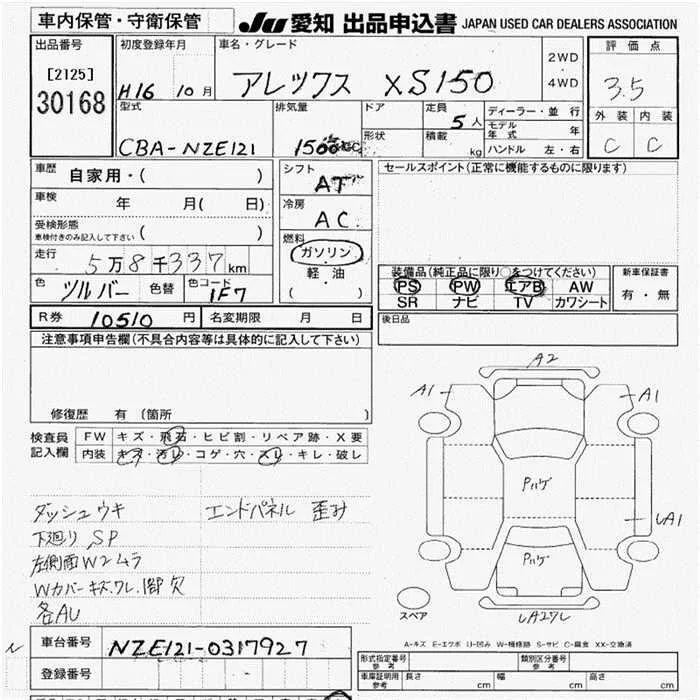 車内保管・守衛保管
JU 愛知 出品申込書 JAPAN USED CAR DEALERS ASSOCIATION
出品番号
[2125]
30168
初度登録年月
H16 10月
車名・グレード
アレックス XS150
2WD
・
4WD
評価点
3.5
外装 内装
C C
型式
CBA-NZE121
排気量
1500
ドア
形状
定員
5人
積載
kg
ディーラー・並行
モデル年式 年
ハンドル 左・右
車歴
自家用・( )
車検 年 月( 日)
受検形態
車検付きのみ記入して下さい ( )
走行
5万8千337km
色 シルバー 色替 色コード 1F7
シフト
AT
冷房
AC
燃料
ガソリン
・
軽・油
( )
セールスポイント(正常に機能するものに限ります)
装備品(純正品に限り○をつけてください)
PS PW エアB AW
SR ナビ TV カワシート
新車保証書
有・無
後日品
R券 10510円 名変期限 月 日
注意事項申告欄(不具合内容等は具体的に記入して下さい)
修復歴 有(箇所 )
検査員記入欄
FW キズ・飛石・ヒビ割・リペア跡・X要
内装 キズ・汚レ・コゲ・穴・スレ・キレ・破レ
ダッシュウキ エンドパネル 歪み
下廻り SP
左側面W2ムラ
Wカバーキズ.ワレ.1部欠
各AU
A2
A1
A1
Pハゲ
UA1
Pハゲ
スペア
UA2ワレ
A-キズ E-エクボ U-凹み W-補修跡 S-サビ C-腐食 XX-交換済
車台番号 NZE121-0317927
登録番号
形式指定番号 参考
類別区分番号 参考
車庫証明用 参考 長さ cm 幅 cm 高さ cm